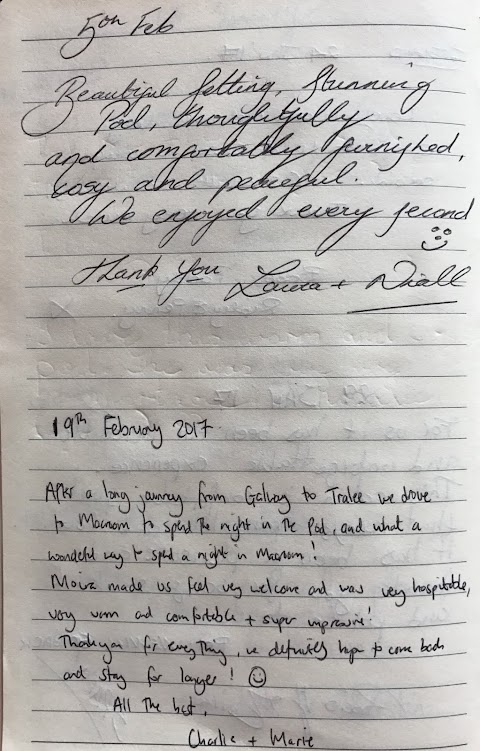 5th Feb
Beautiful setting, Stunning
Pod, thoughtfully
and comfortably furnished,
cosy and peaceful.
We enjoyed every second
Thank You Laura + Niall
19th February 2017
After a long journey from Galway to Tralee we drove
to Macroom to spend the night in the Pod, and what a
wonderful way to spend a night in Macroom!
Moira made us feel very welcome and was very hospitable,
very warm and comfortable + super impressive!
Thankyou for everything, we definitely hope to come back
and stay for longer! ☺
All the best,
Charlie + Marie